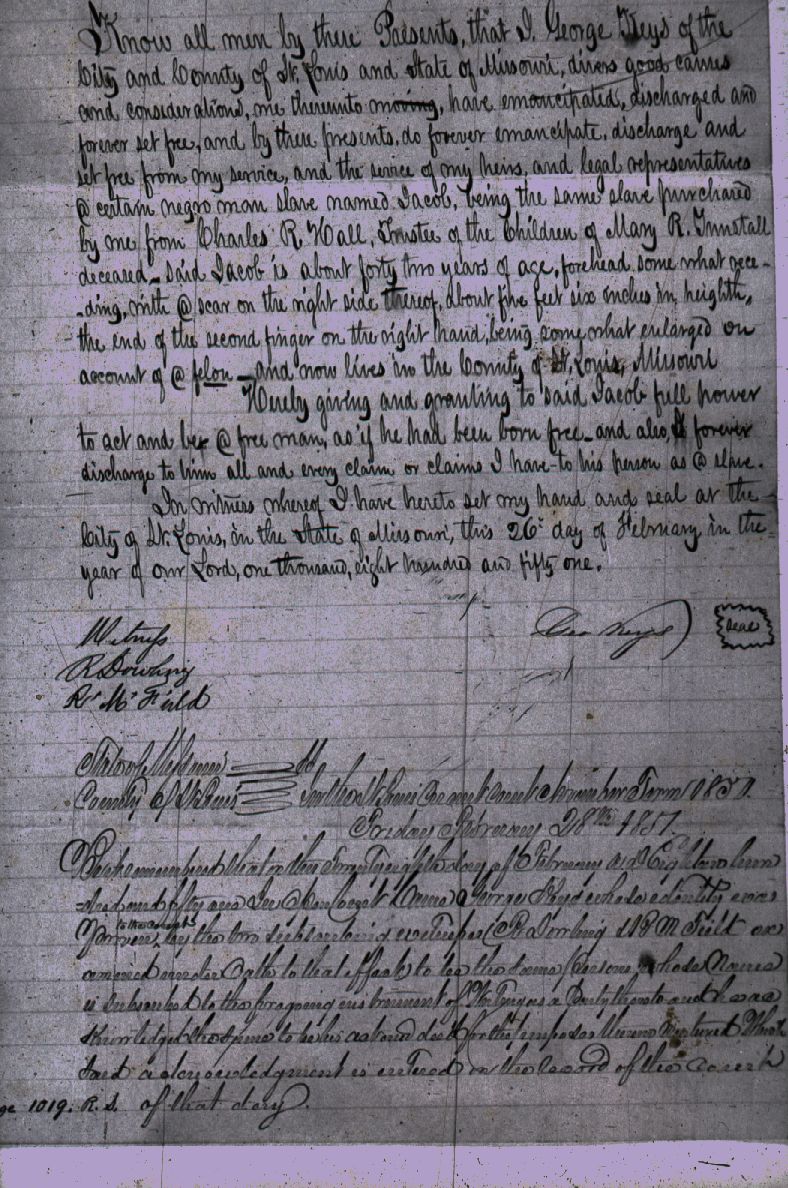 Know all men by these Presents, that I. George Keys of the
City and County of St. Louis and State of Missouri, divers good causes
and considerations, me thereunto moving, have emancipated, discharged and
forever set free, and by these presents, do forever emancipate, discharge and
set free from my service, and the service of my heirs, and legal representatives
@ certain negro man slave named Jacob, being the same slave purchased
by me from Charles R. Hall, Trustee of the Children of Mary R. Tunstall
deceased_ said Jacob is about forty two years of age, forehead somewhat rece-
-ding, with @ scar on the right side thereof, about five feet six inches in heighth,
the end of the second finger on the right hand, being somewhat enlarged on
account of @ felon_ and now lives in the County of St, Louis, Missouri
Hereby giving and granting to said Jacob full power
to act and be @ free man, as if he had been born free_ and also, forever
discharge to him all and every claim or claims I have to his person as @ slave.
In witness whereof I have hereto set my hand and seal at the
City of St. Louis, in the State of Missouri, this 26 day of February in the
year of our Lord, one thousand, eight hundred and fifty one.
Geo Keys Seal
Witness
R Dowling
R M Field
State of Missouri
County of St Louis In the St Louis Circuit Court November Term 1850.
Friday February 28th 1851.
Be it remembered that on this Twenty eighth day of February A D Eighteen hun
-dred and fifty one In Open Court Came George Keys whose identity was
to the Court
Proven, by the two subscribing witnesses R Dowling & R M Field ex
amined under Oath to that effect to be the same person whose Name
is Subscribed to the foregoing instrument of Writing as a party thereto and he ac
knowledged the same to be his act and deed for the purposes therein mentioned Which
said acknowledgment is entered on the record of the court
1019. R. S. of that day.